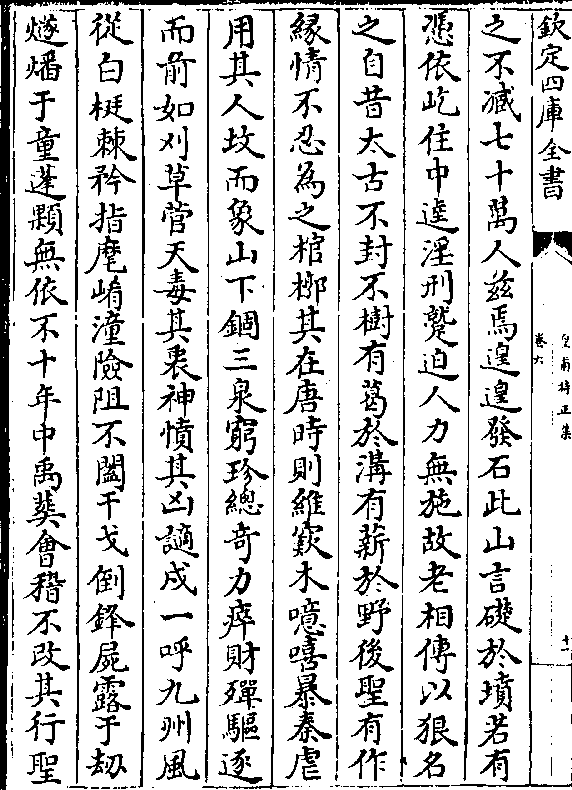 欽定四庫全書
皇甫持正集
卷六
之不減七十萬人兹焉遑遑發石此山言礎於墳若有
憑依屹住中逵淫刑蹵迫人力無施故老相傳以狠名
之自昔太古不封不樹有葛於溝有薪於野後聖有作
緣情不忍為之棺槨其在唐時則維窾木噫嘻暴秦虐
用其人坟而象山下錮三泉窮珍總奇力瘁財殫驅逐
而前如刈草菅天毒其衷神憤其凶謫戍一呼九州風
從白梃棘矜指麾崤潼險阻不闔干戈倒鋒屍露于刼
燧燔于童蓬顆無依不十年中禹葬會稽不改其行聖